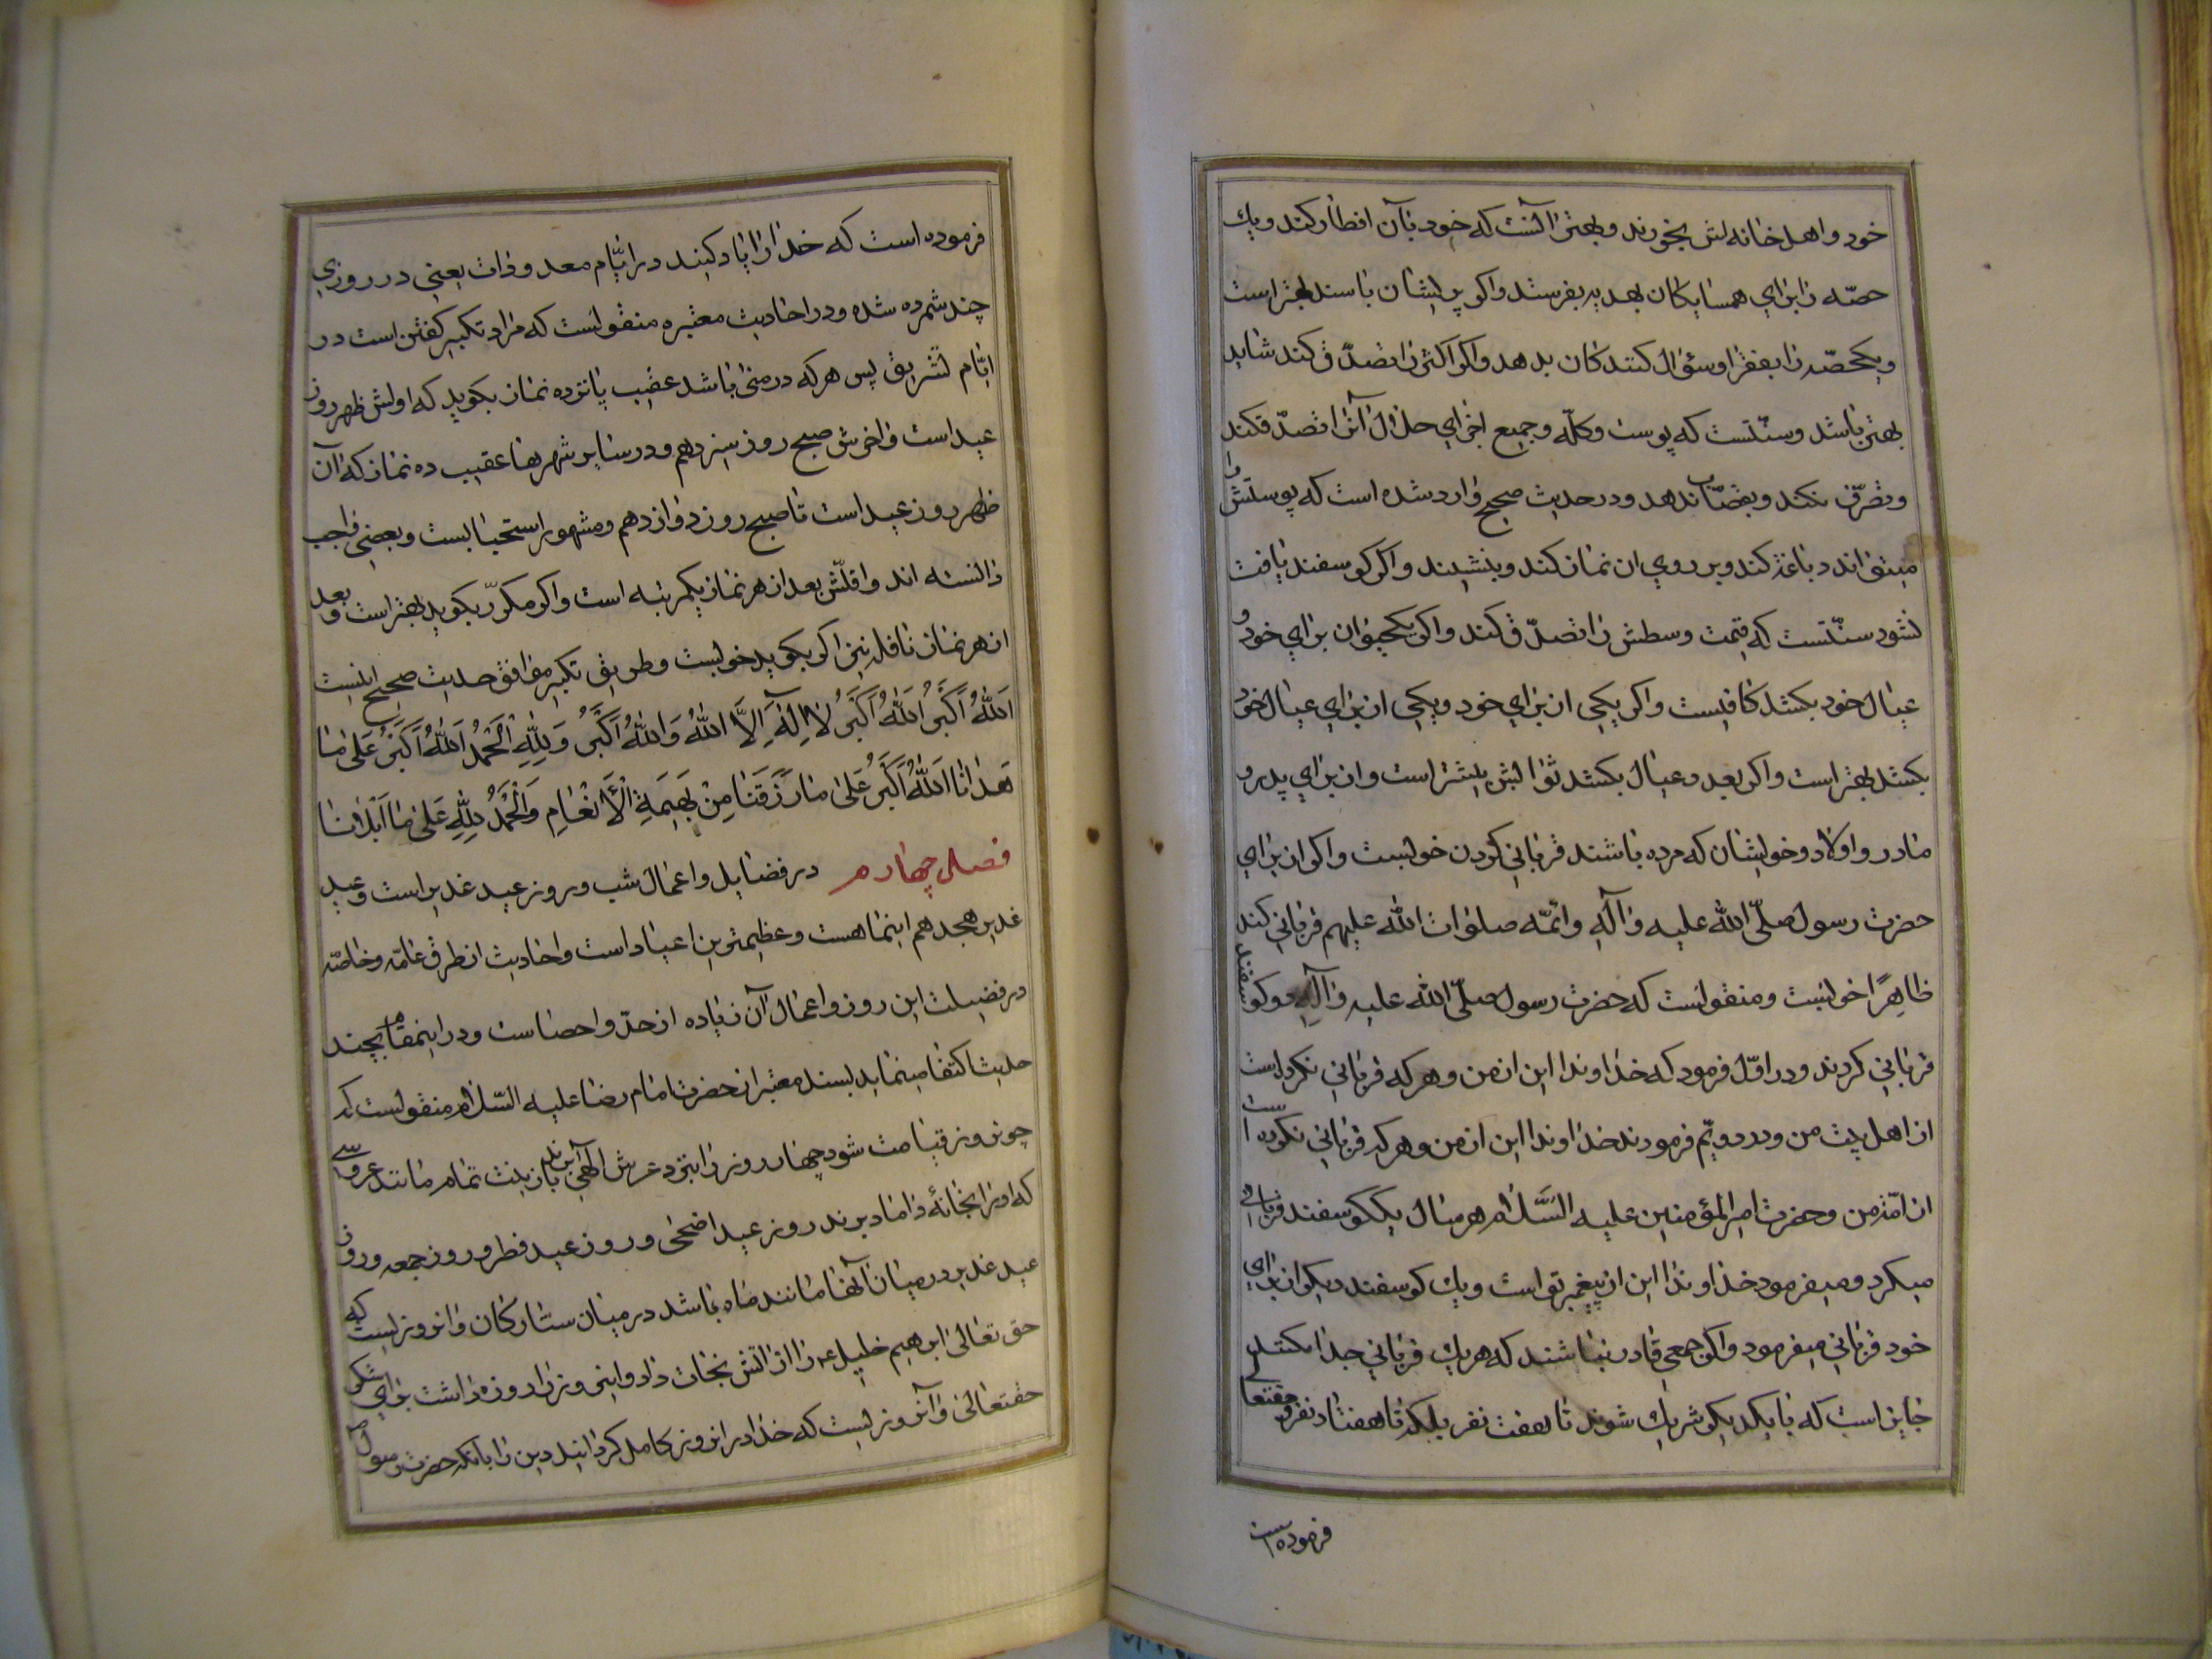 خود و اهل خانه‌اش بخورند و بهتر آنست که خود بآن افطار کند و یك
حصّه را برای همسایکان بهدیه بفرستد و اکر پریشان باشند بهتر است
و یکحصّه را بفقرا و سؤال کنندکان بدهد و اکر اکثر را تصدّق کند شاید
بهتر باشد و سنّتست که پوست و کلّه و جمیع اجزای حلال آنرا تصدّق کند
و تصرّف نکند و بقصّاب ندهد و در حدیث صحیح وارد شده است که پوستش را
میتواند دباغت کند و بر روی ان نماز کند و بنشیند و اکر کوسفند یافت
نشود سنّتست که قیمت وسطش را تصدّق کند و اکر یکحیوان برای خود و
عیال خود بکشد کافیست و اکر یکی از برای خود و یکی از برای عیال خود
بکشد بهتر است و اکر بعدد عیال بکشد ثوابش بیشتر است و از برای پدر و
مادر و اولاد و خویشان که مرده باشند قربانی کردن خوبست و اکر از برای
حضرت رسول صلّی الله علیه و آله و ائمّه صلوات الله علیهم قربانی کند
ظاهراً خوبست و منقولست که حضرت رسول صلّی الله علیه و آله دو کوسفند
قربانی کردند و در اوّل فرمود که خداوندا این از من و هر که قربانی نکرده است
از اهل بیت من و در دویّم فرمودند خداوندا این از من و هر که قربانی نکرده است
از امّت من و حضرت امیر المؤمنین علیه السَّلام هر سال یککوسفند قربانی
میکرد و میفرمود خداوندا این از پیغمبر تو است و یك کوسفند دیکر از برای
خود قربانی میفرمود و اکر جمعی قادر نباشند که هر یك قربانی جدا بکشند
جایز است که با یکدیکر شریك شوند تا هفت نفر بلکه تا هفتاد نفر و حقتعالی
فرموده است
فرموده است که خدا را یاد کنید در ایّام معدودات یعنی در روزی
چند شمرده شده و در احادیث معتبره منقولست که مراد تکبیر کفتن است در
ایّام تشریق پس هر که در منی باشد عقیب پانزده نماز بکوید که اولش ظهر روز
عید است و اخرش صبح روز سیزدهم و در سایر شهرها عقیب ده نماز که آن
ظهر روز عید است تا صبح روز دوازدهم و مشهور استحبابست و بعضی واجب
دانسته اند و اقلّش بعد از هر نماز یکمرتبه است و اکر مکرّر بکوید بهتر است و بعد
از هر نماز نافله نیز اکر بکوید خوبست و طریق تکبیر موافق حدیث صحیح اینست
اَللهُ اَکْبَرُ اَللهُ اَکْبَرُ لا اِلٰهَ اِلاَّ اللهُ وَاللهُ اَکْبَرُ وَ لِلّٰهِ الْحَمْدُ اَللهُ اَکْبَرُ عَلیٰ ما
هَدانا اَللهُ اَکْبَرُ عَلیٰ ما رَزَقَنا مِنْ بَهیمَةِ الْأَنْعامِ وَالْحَمْدُ لِلّٰهِ عَلیٰ ما اَبْلانا
فصل چهارم در فضایل و اعمال شب و روز عید غدیر است و عید
غدیر هجدهم اینماهست و عظیمترین اعیاد است و احادیث از طرق عامّه و خاصّه
در فضیلت این روز و اعمال آن زیاده از حدّ و احصاست و در اینمقام بچند
حدیث اکتفا مینماید بسند معتبر از حضرت امام رضا علیه السّلام منقولست که
چون روز قیامت شود چهار روز را بنزد عرش الهی آورند با زینت تمام مانند عروسی
که او را بخانۀ داماد برند روز عید اضحی و روز عید فطر و روز جمعه و روز
عید غدیر در میان آنها مانند ماه باشد در میان ستارکان و آنروزیست که
حق تعالی ابرهیم خلیل ع را از آتش نجات داد و اینروز را روزه داشت برای شکر
حقتعالی و آنروزیست که خدا در انروز کامل کردانید دین را بآنکه حضرت رسول ص